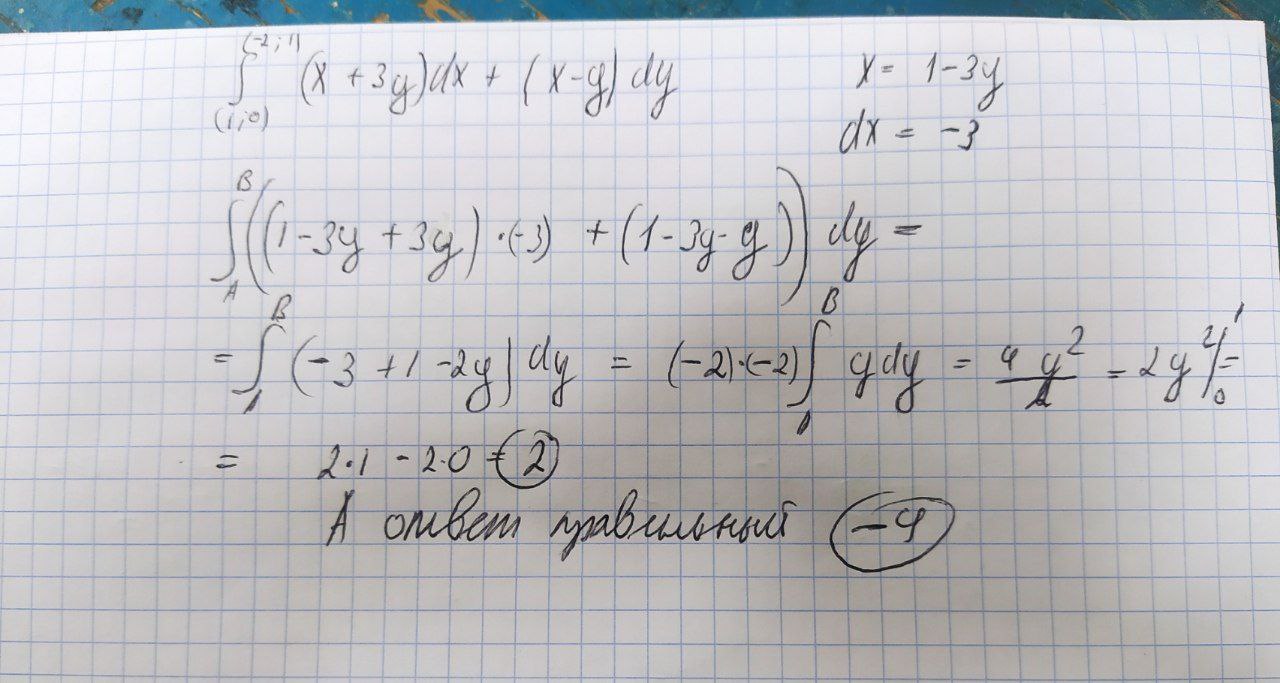 ∫_(1;0)^(-2;1) (x + 3y)dx + (x-y) dy        x = 1-3y
dx = -3
∫_A^B ((1-3y + 3y) · (-3) + (1-3y-y)) dy =
= ∫_A^B (-3 + 1 - 2y) dy = (-2)·(-2) ∫_A^B y dy = 4y²/2 = 2y² |_0^1 =
= 2·1 - 2·0 = 2
А ответ правильный -4